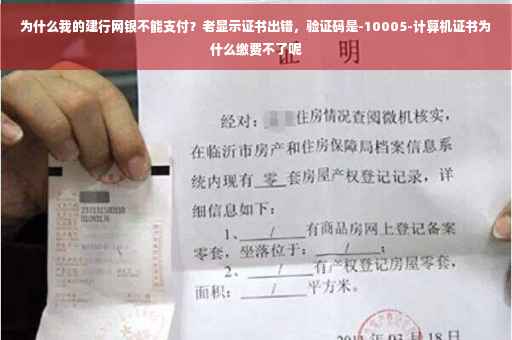 为什么我的建行网银不能支付？老显示证书出错，验证码是-10005-计算机证书为
什么缴费不了呢
证 明
经对：住房情况查阅微机核实，
在临沂市房产和住房保障局档案信息系
统内现有 零 套房屋产权登记记录，详
细信息如下：
1、 / 有商品房网上登记备案
零套，坐落位于： / ；
2、 / 有产权登记房屋零套，
面积： / 平方米。
03月18日